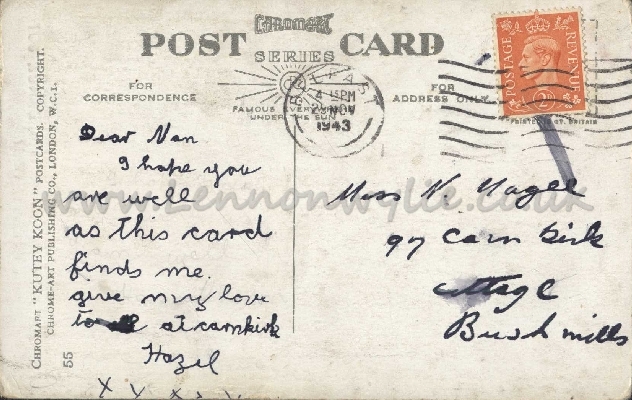 CHROMART
POST CARD
SERIES
FOR
CORRESPONDENCE
FAMOUS
UNDER THE SUN
FOR
ADDRESS ONLY
POSTAGE REVENUE
PRINTED IN GT. BRITAIN
BELFAST
NOV
1943
CHROMART "KUTEY KOON" POSTCARDS. COPYRIGHT.
CHROME-ART PUBLISHING CO., LONDON, W.C.1.
55
Dear Nan
I hope you
are well
as this card
finds me.
give my love
to all at carnkirk
Hazel
X X X X
Miss N. Nagee
97 Carn kirk
Bushmills
www.Lennonwylie.co.uk